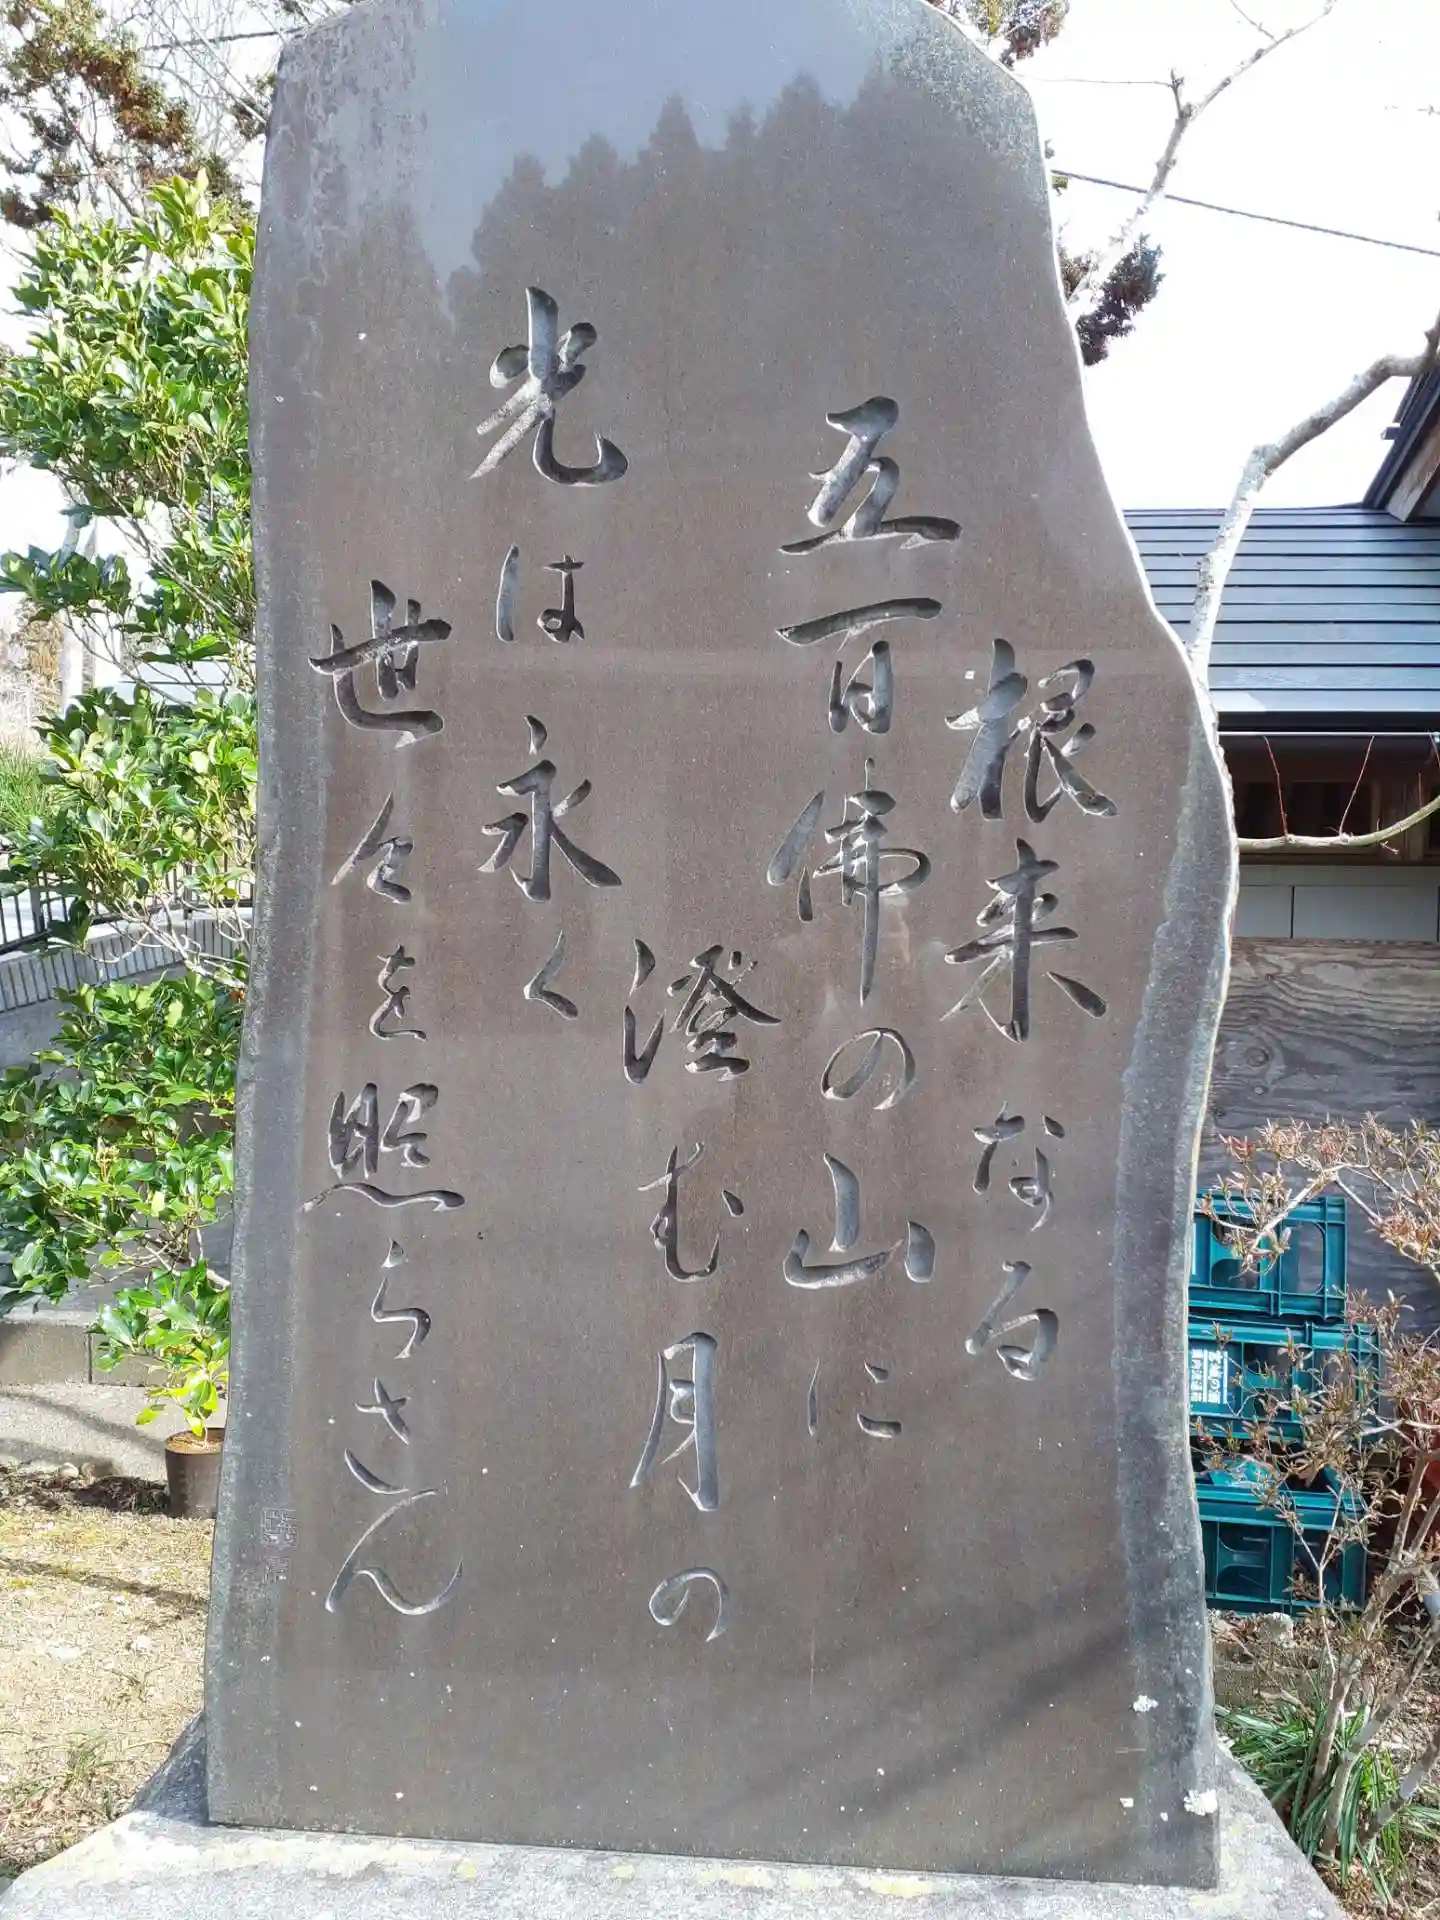 根来なる
五百佛の山に
澄む月の
光は永く
世々を照らさん